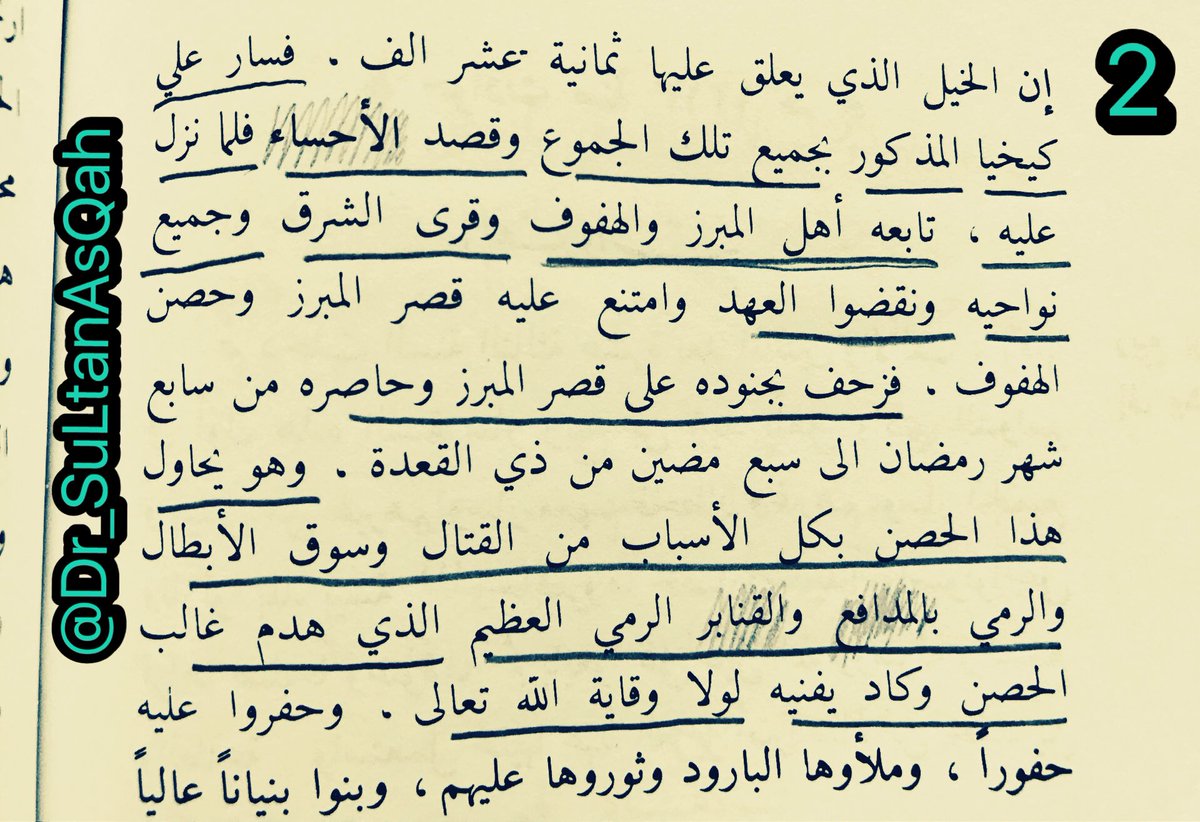 2
إن الخيل الذي يعلق عليها ثمانية عشر الف . فسار علي
كيخيا المذكور بجميع تلك الجموع وقصد الأحساء فلما نزل
عليه ، تابعه أهل المبرز والهفوف وقرى الشرق وجميع
نواحيه ونقضوا العهد وامتنع عليه قصر المبرز وحصن
الهفوف . فزحف بجنوده على قصر المبرز وحاصره من سابع
شهر رمضان الى سبع مضين من ذي القعدة . وهو يحاول
هذا الحصن بكل الأسباب من القتال وسوق الأبطال
والرمي بالمدافع والقنابر الرمي العظيم الذي هدم غالب
الحصن وكاد يفنيه لولا وقاية الله تعالى . وحفروا عليه
حفوراً ، وملأوها البارود وثوروها عليهم ، وبنوا بنياناً عالياً
@Dr_SuLtanAsQah